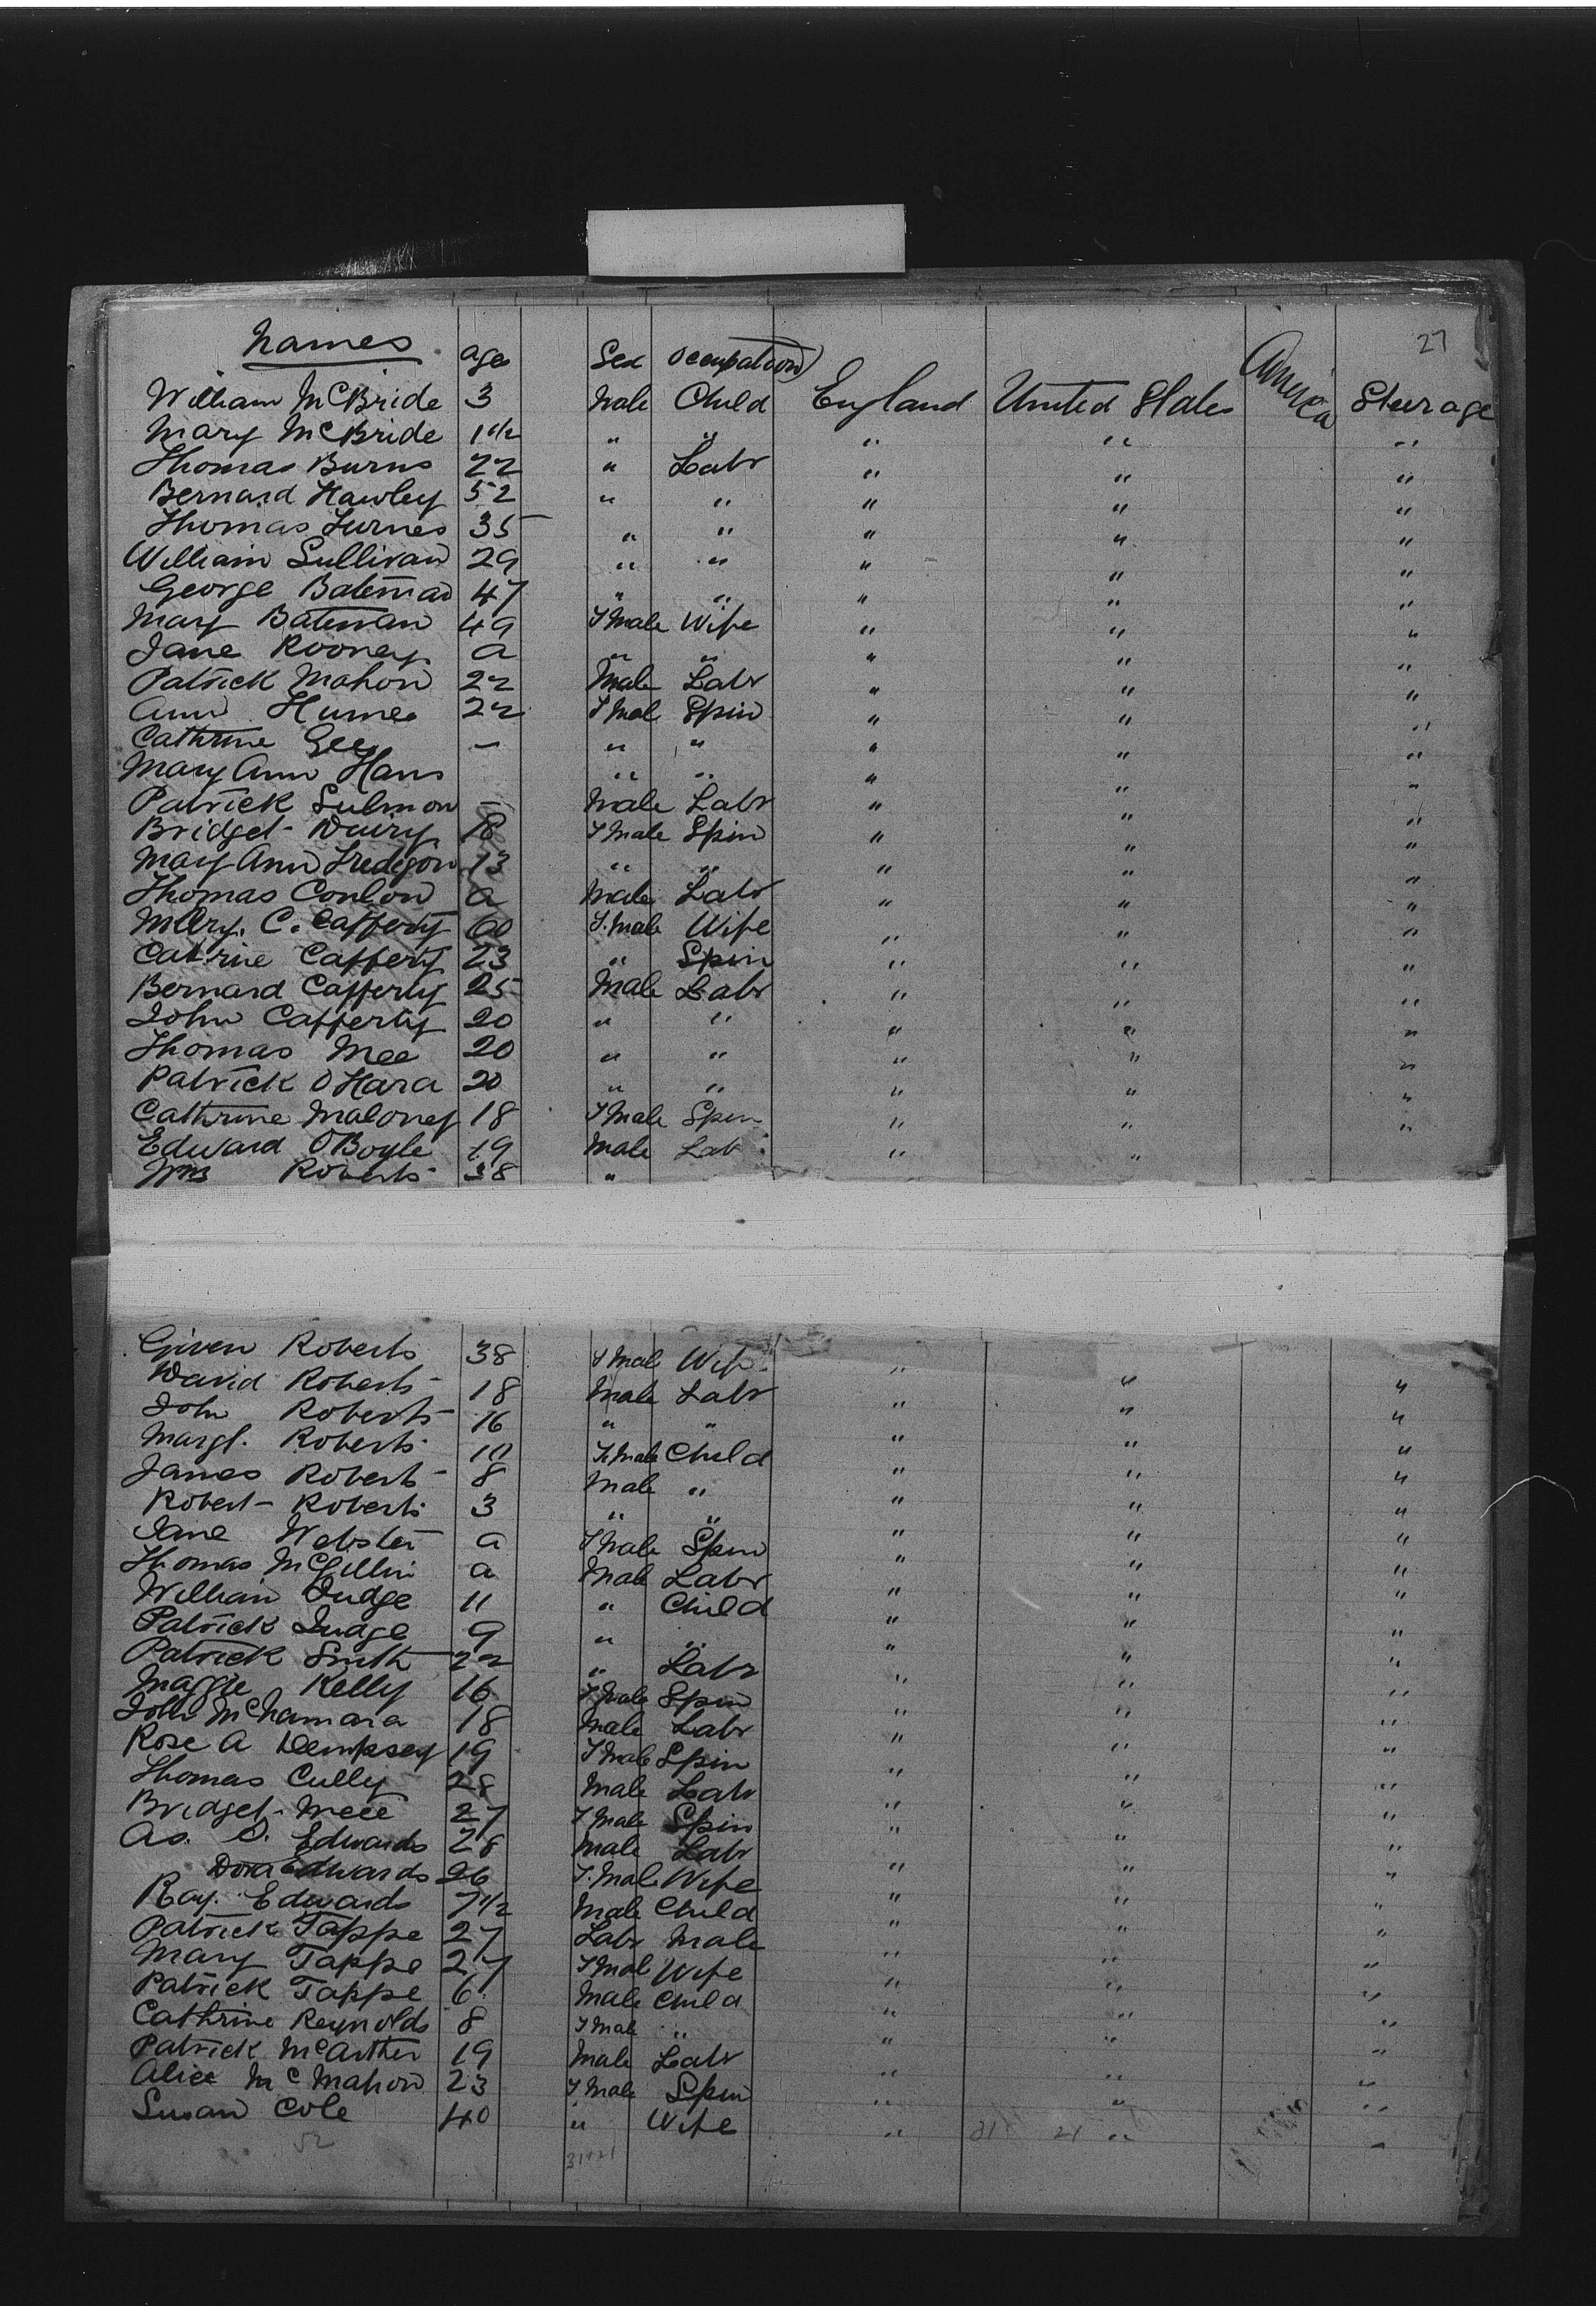 27
Names age Sex Occupation
William McBride 3 Male Child England United States America Steerage
Mary McBride 1 1/2 " " " " "
Thomas Burns 22 " Labr " " "
Bernard Hawley 52 " " " " "
Thomas Furnes 35 " " " " "
William Sullivan 29 " " " " "
George Bateman 47 " " " " "
Mary Bateman 49 FMale Wife " " "
Jane Rooney a " " " " "
Patrick Mahon 22 Male Labr " " "
Ann Humes 22 FMal Spin " " "
Cathrine Gee – " " " " "
Mary Ann Hans " " " " "
Patrick Sulmon – Male Labr " " "
Bridget Dairy 18 FMale Spin " " "
Mary Ann 13 " " " " "
Thomas Conlon a Male Labr " " "
C. Cafferty 60 F.Male Wife " " "
Catrine Cafferty 23 " Spin " " "
Bernard Cafferty 25 Male Labr " " "
John Cafferty 20 " " " " "
Thomas Mee 20 " " " " "
Patrick OHara 20 " " " " "
Cathrine Maloney 18 FMale Spin " " "
Edward OBoyle 19 Male Lab " "
Wm Roberts 38 "
Given Roberts 38 FMale Wife " " "
David Roberts 18 Male Labr " " "
John Roberts 16 " " " " "
Margt. Roberts 10 FeMale Child " " "
James Roberts 8 Male " " " "
Robert Roberts 3 " " " " "
Jane Webster a FMale Spin " " "
Thomas McGillin a Male Labr " " "
William Judge 11 " Child " " "
Patrick Judge 9 " " " " "
Patrick Smith 22 " Labr " " "
Maggie Kelly 16 FMale Spin " " "
John McNamara 18 Male Labr " " "
Rose A Dempsey 19 FMale Spin " " "
Thomas Cully 28 Male Labr " " "
Bridget Meee 27 FMale Spin " " "
As. S. Edwards 28 Male Labr " " "
Dora Edwards 26 F.Male Wife " " "
Ray. Edwards 7 1/2 Male Child " " "
Patrick Tappe 27 Labr Male " " "
Mary Tappe 27 FMal Wife " " "
Patrick Tappe 6 Male Child " " "
Cathrine Reynolds 8 FMale " " " "
Patrick McArther 19 Male Labr " " "
Alice McMahon 23 FMale Spin " " "
Susan Cole 40 " Wife " 31 21 " "
52 31+21